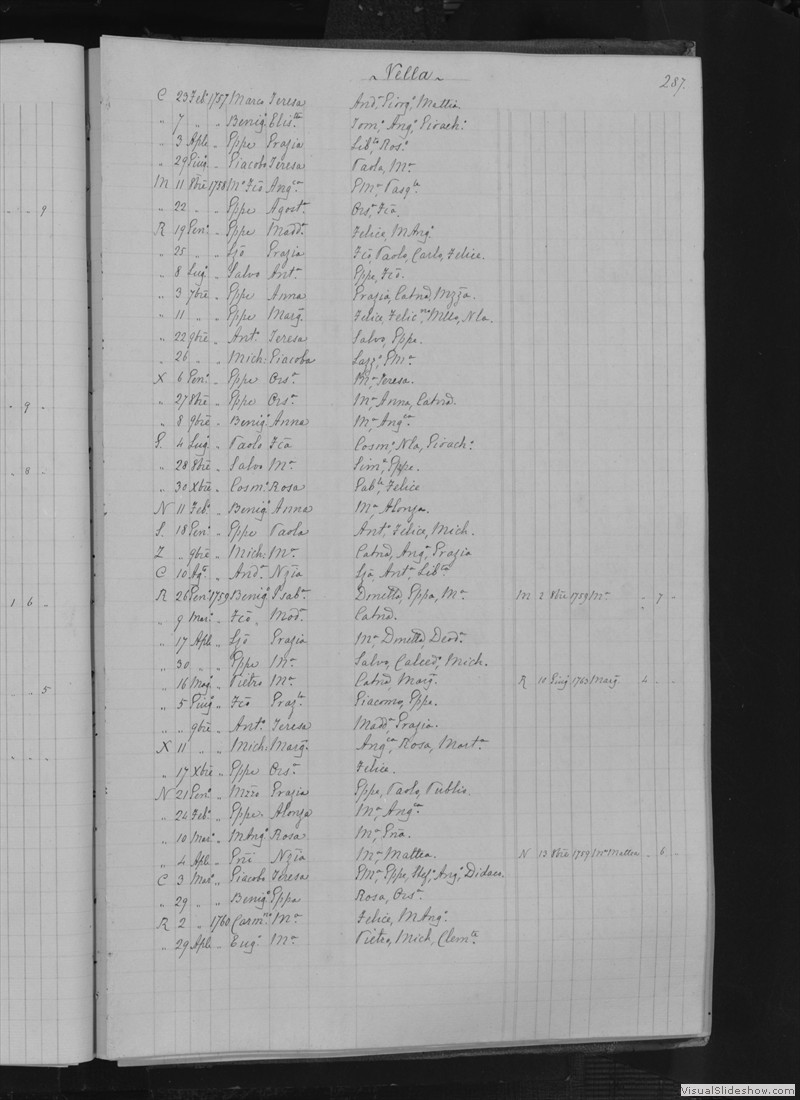 Vella
287.
C 23 Feb. 1757 Marco Teresa And., Giorg., Mattia
" 7 " " Benig. Elis.tta Tom., Ang., Gioach.
" 3 Aple " Gppe Grazia Lib.ta, Ros.
" 29 Giug. " Giacobo Teresa Paola, M.a
M 11 8bre 1758 M. Fco Ang.ca GM., Pasq.le
" 22 " " Gppe Agost.a Ors., Fca.
R 19 Gen. " Gppe Madd.a Felice, MAng.
" 25 " " Ljo Grazia Fco, Paolo, Carlo, Felice.
" 8 Lug. " Salvo Ant.a Gppe, Fco.
" 3 7bre " Gppe Anna Grazia, Catna, Mzja.
" 11 " " Gppe Marg. Felice, Felic.na, Mlla, Nla.
" 22 9bre " Ant. Teresa Salvo, Gppa.
" 26 " " Mich. Giacoba Lazz., GM.a
X 6 Gen. " Gppe Ors.a M.a, Teresa.
" 27 8bre " Gppe Ors.a M.a, Anna, Catna.
" 8 9bre " Benig. Anna M.a, Ang.ca
G. 4 Lug. " Paolo Fca Cosm., Nla, Gioach.
" 28 8bre " Salvo M.a Sim., Gppe.
" 30 Xbre " Cosm. Rosa Gab.le, Felice
N 11 Feb. " Benig. Anna M.a, Alonza.
S. 18 Gen. " Gppe Paola Ant., Felice, Mich.
Z " 9bre " Mich. M.a Catna, Ang., Grazia
C 10 Ag. " And. Nzia Ljo, Ant.a, Lib.ta
1 6 R 26 Gen. 1759 Benig. Isab.a Dmetta, Gppa, M.a M 2 8bre 1759 M.a " 7 "
" 9 Mar. " Fco Mod.a Catna.
" 17 Aple " Ljo Grazia M.a, Dmetta, Deod.a
" 30 " " Gppe M.a Salvo, Calced., Mich.
" 16 Mag. " Pietro M.a Catna, Marg. R 10 Giug. 1763 Marg. " 4 "
" 5 Giug. " Fco Graz.la Giacomo, Gppa.
" " 9bre " Ant. Teresa Madd., Grazia.
X 11 " " Mich. Marg. Ang.ca, Rosa, Mart.a
" 17 Xbre " Gppe Ors.a Felice.
N 21 Gen. " Mzzo Grazia Gppe, Paolo, Publio.
" 24 Feb. " Gppe Alonza M.a, Ang.ca
" 10 Mar. " MAng. Rosa M.a, Gna.
" 4 Aple " Gni Nzia M.a, Mattea. N 13 8bre 1759 M.a Mattea " 6 "
C 3 Mar. " Giacobo Teresa GM., Gppe, Stef., Ang., Didaca.
" 29 " " Benig. Gppa Rosa, Ors.a
R 2 " 1760 Carm.no M.a Felice, MAng.
" 29 Aple " Eug. M.a Pietro, Mich, Clem.te
9
9
8
5
VisualSlideshow.com